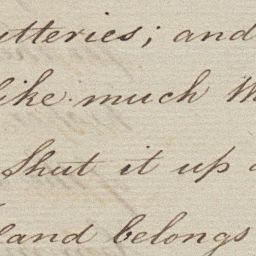 utteries; and
like much
Shut it up
land belongs